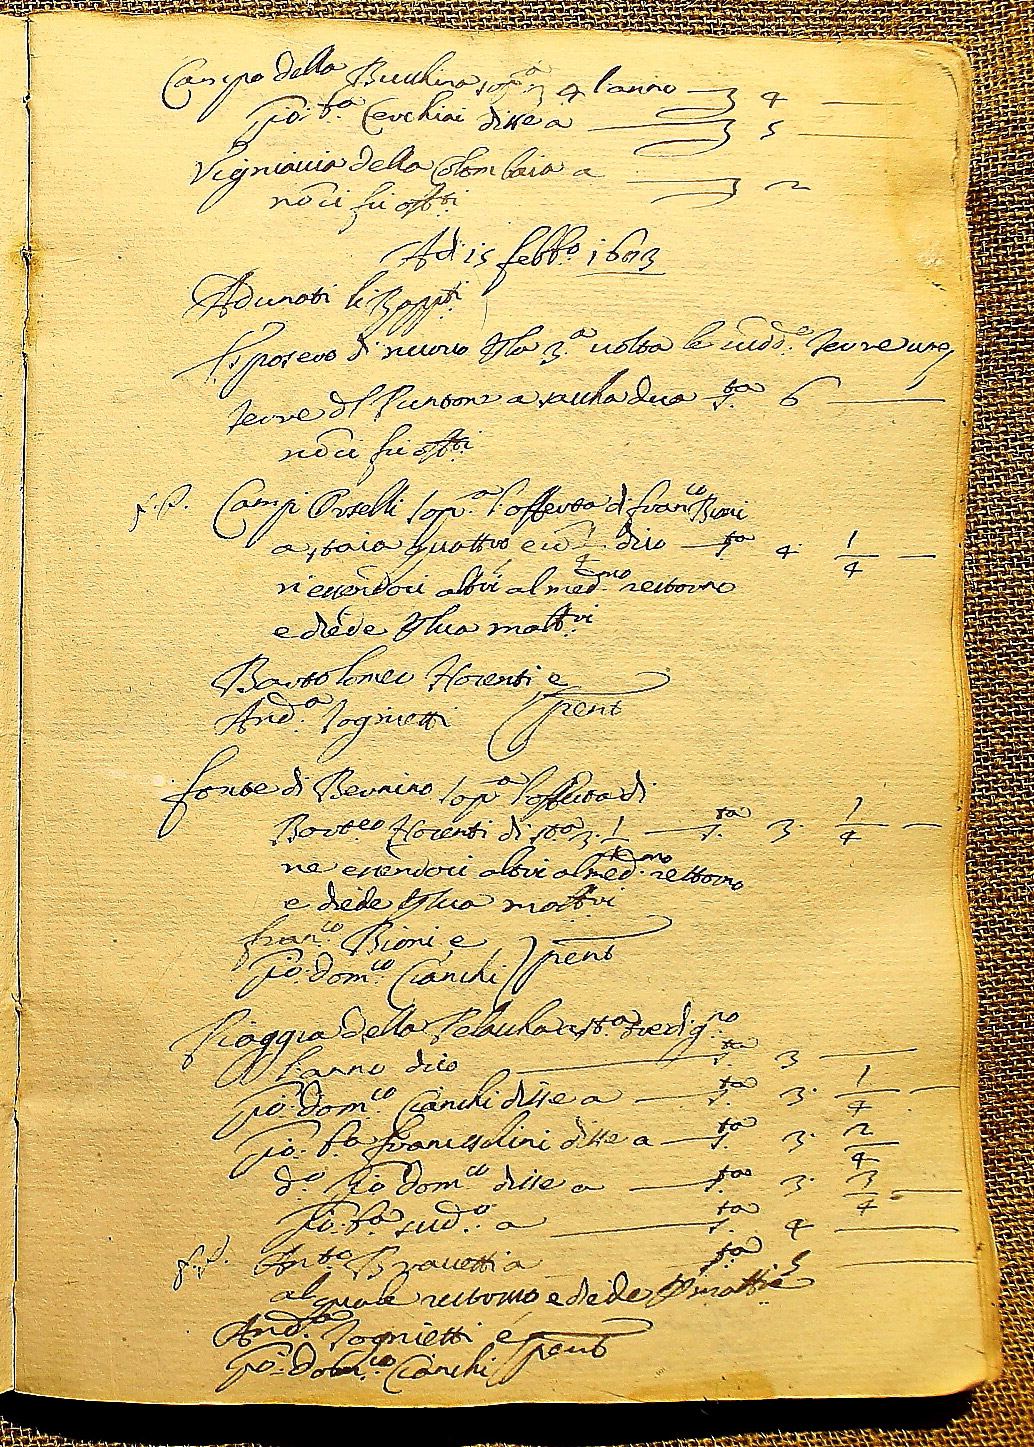 Campo della Bucchina sop.a 3 4 l'anno — 3 4 —
Gio: b.a Cecchini disse a — 3 5 —
Vigniaccia della Colombaia a — 3 2
nõ ci fu off.ti
Adì 15 febb.o 1693
Adunati li
di nuovo 3.a volta le terre
Terre d'l Puntone a sacha dua st.a 6 —
nõ ci fu off.ti
Campi Orselli sop.a l'offerta di Fran.co Bioni
a staia quattro e 1/4 dico — st.a 4 1/4 —
n'essendoci altri al med.mo restorno
e diede
Bartolomeo Florenti e
And.a Tognietti
fonte di Bernino sop.a l'offerta di
Bart.eo Florenti di st.a 3 1/4 — st.a 3. 1/4 —
ne essendoci altri al med.mo restorno
e diede
Fran.co Bioni e
Gio: Dom.co Cianchi
Piaggia della st.a tre di g.no
l'anno dico — st.a 3 —
Gio: Dom.co Cianchi disse a — st.a 3. 1/4 —
Gio: b.a Franceschini disse a — st.a 3. 2/4
d.o Gio Dom.co disse a — st.a 3. 3/4 —
Gio: b.a sud.o a — st.a 4 —
Ant.o a st.a 5 —
al quale restorno e diede
And.a Tognietti e
Gio: Dom.co Cianchi